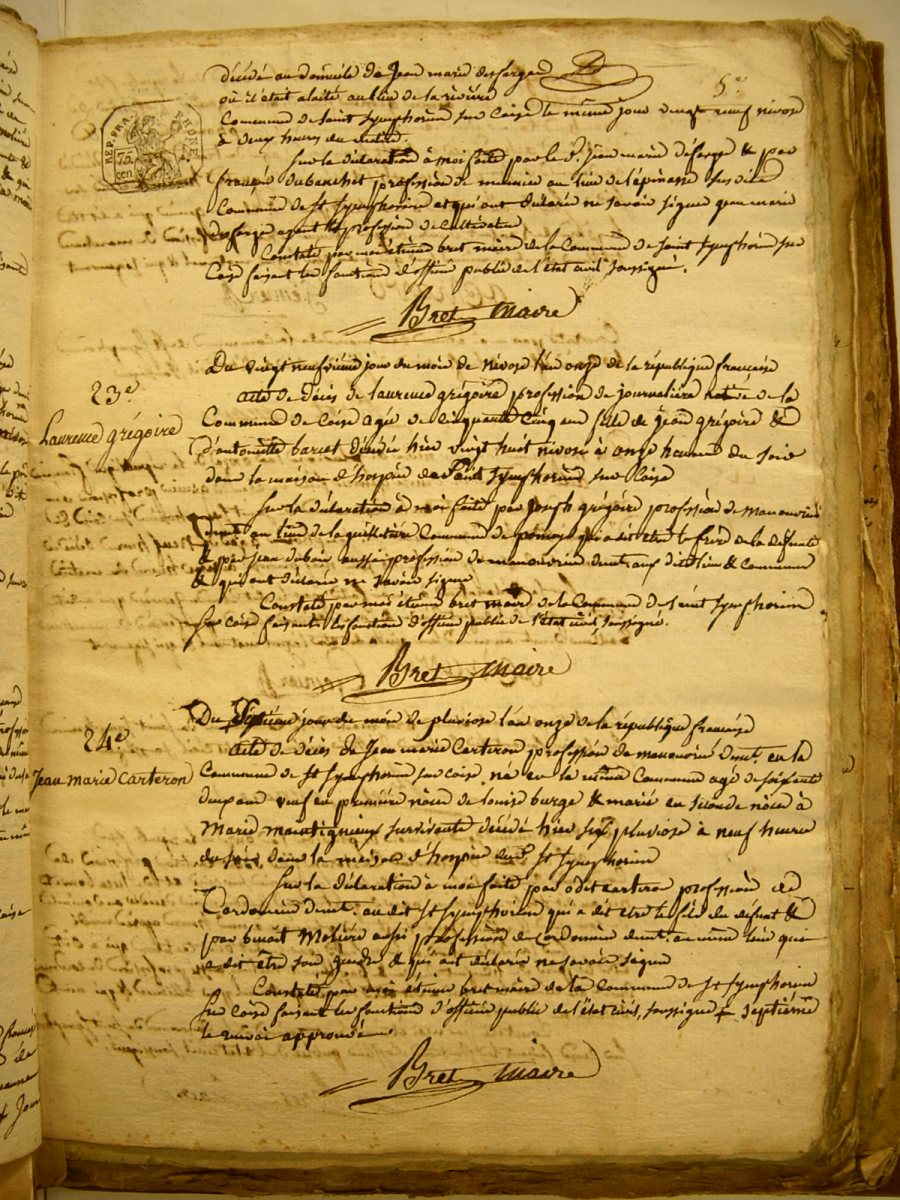 5e
REP. FRA.
75
cen
RHONE
décédé au domicile de Jean marie desfarges
où il était alaité au lieu de la rivière
Commune de Saint Symphorien sur Coise le même jour vingt neuf nivose
à deux heures du matin
Sur la déclaration à moi faite par le S. Jean marie défarge & par
françois dubanchet profession de munier au lieu de l'épinasse susdite
Commune de St Symphorien et qui ont déclaré ne savoir signer Jean marie
desfarge ayant la profession de cultivateur
Constaté par moi étienne bret maire de la Commune de Saint Symphorien sur
Coise faisant les fonctions d'officier public de l'état civil soussigné.
Bret maire
23e
Laurence grégoire
Du vingt neufvième jour du mois de nivose l'an onze de la république française
acte de décès de laurence grégoire profession de journalière native de la
Commune de Coise agée de cinquante cinq ans fille de jean grégoire &
d'antoinette barcet décédée hier vingt huit nivose à onze heures du soir
dans la maison d'hospice de Saint Symphorien sur Coise
Sur la déclaration à moi faite par joseph grégoire profession de manouvrier
demt au lieu de la guilletière Commune de pomeis qui a dit être le frère de la défunte
& par jean dubois aussi profession de manouvrier demt. aux dits lieu & commune
& qui ont déclaré ne savoir signer
Constaté par moi étienne bret maire de la Commune de Saint Symphorien
sur Coise faisants les fonctions d'officier public de l'état civil, soussigné.
Bret maire
24e
Jean marie Carteron
Du Septième jour du mois de pluviose l'an onze de la république française
acte de décès de Jean marie Carteron profession de manouvrier demt. en la
Commune de St Symphorien sur coise. né en la même Commune agé de soixante
deux ans veuf en première nôces de louise burge & marié en seconde nôces à
Marie montignieux survivante décédé hier six pluviose à neuf heures
du soir, dans la maison d'hospice dudt. St Symphorien
Sur la déclaration à moi faite par odet carteron profession de
Cordonnier demt. audit St Symphorien qui a dit être le fils du défunt &
par benoit Molière aussi profession de cordonnier demt. au même lieu qui
a dit être son gendre & qui ont déclaré ne savoir signer
Constaté par moi étienne bret maire de la Commune de St Symphorien
sur Coise faisant les fonctions d'officier public de l'état civil, soussigné + septième
le renvoi approuvé
Bret maire